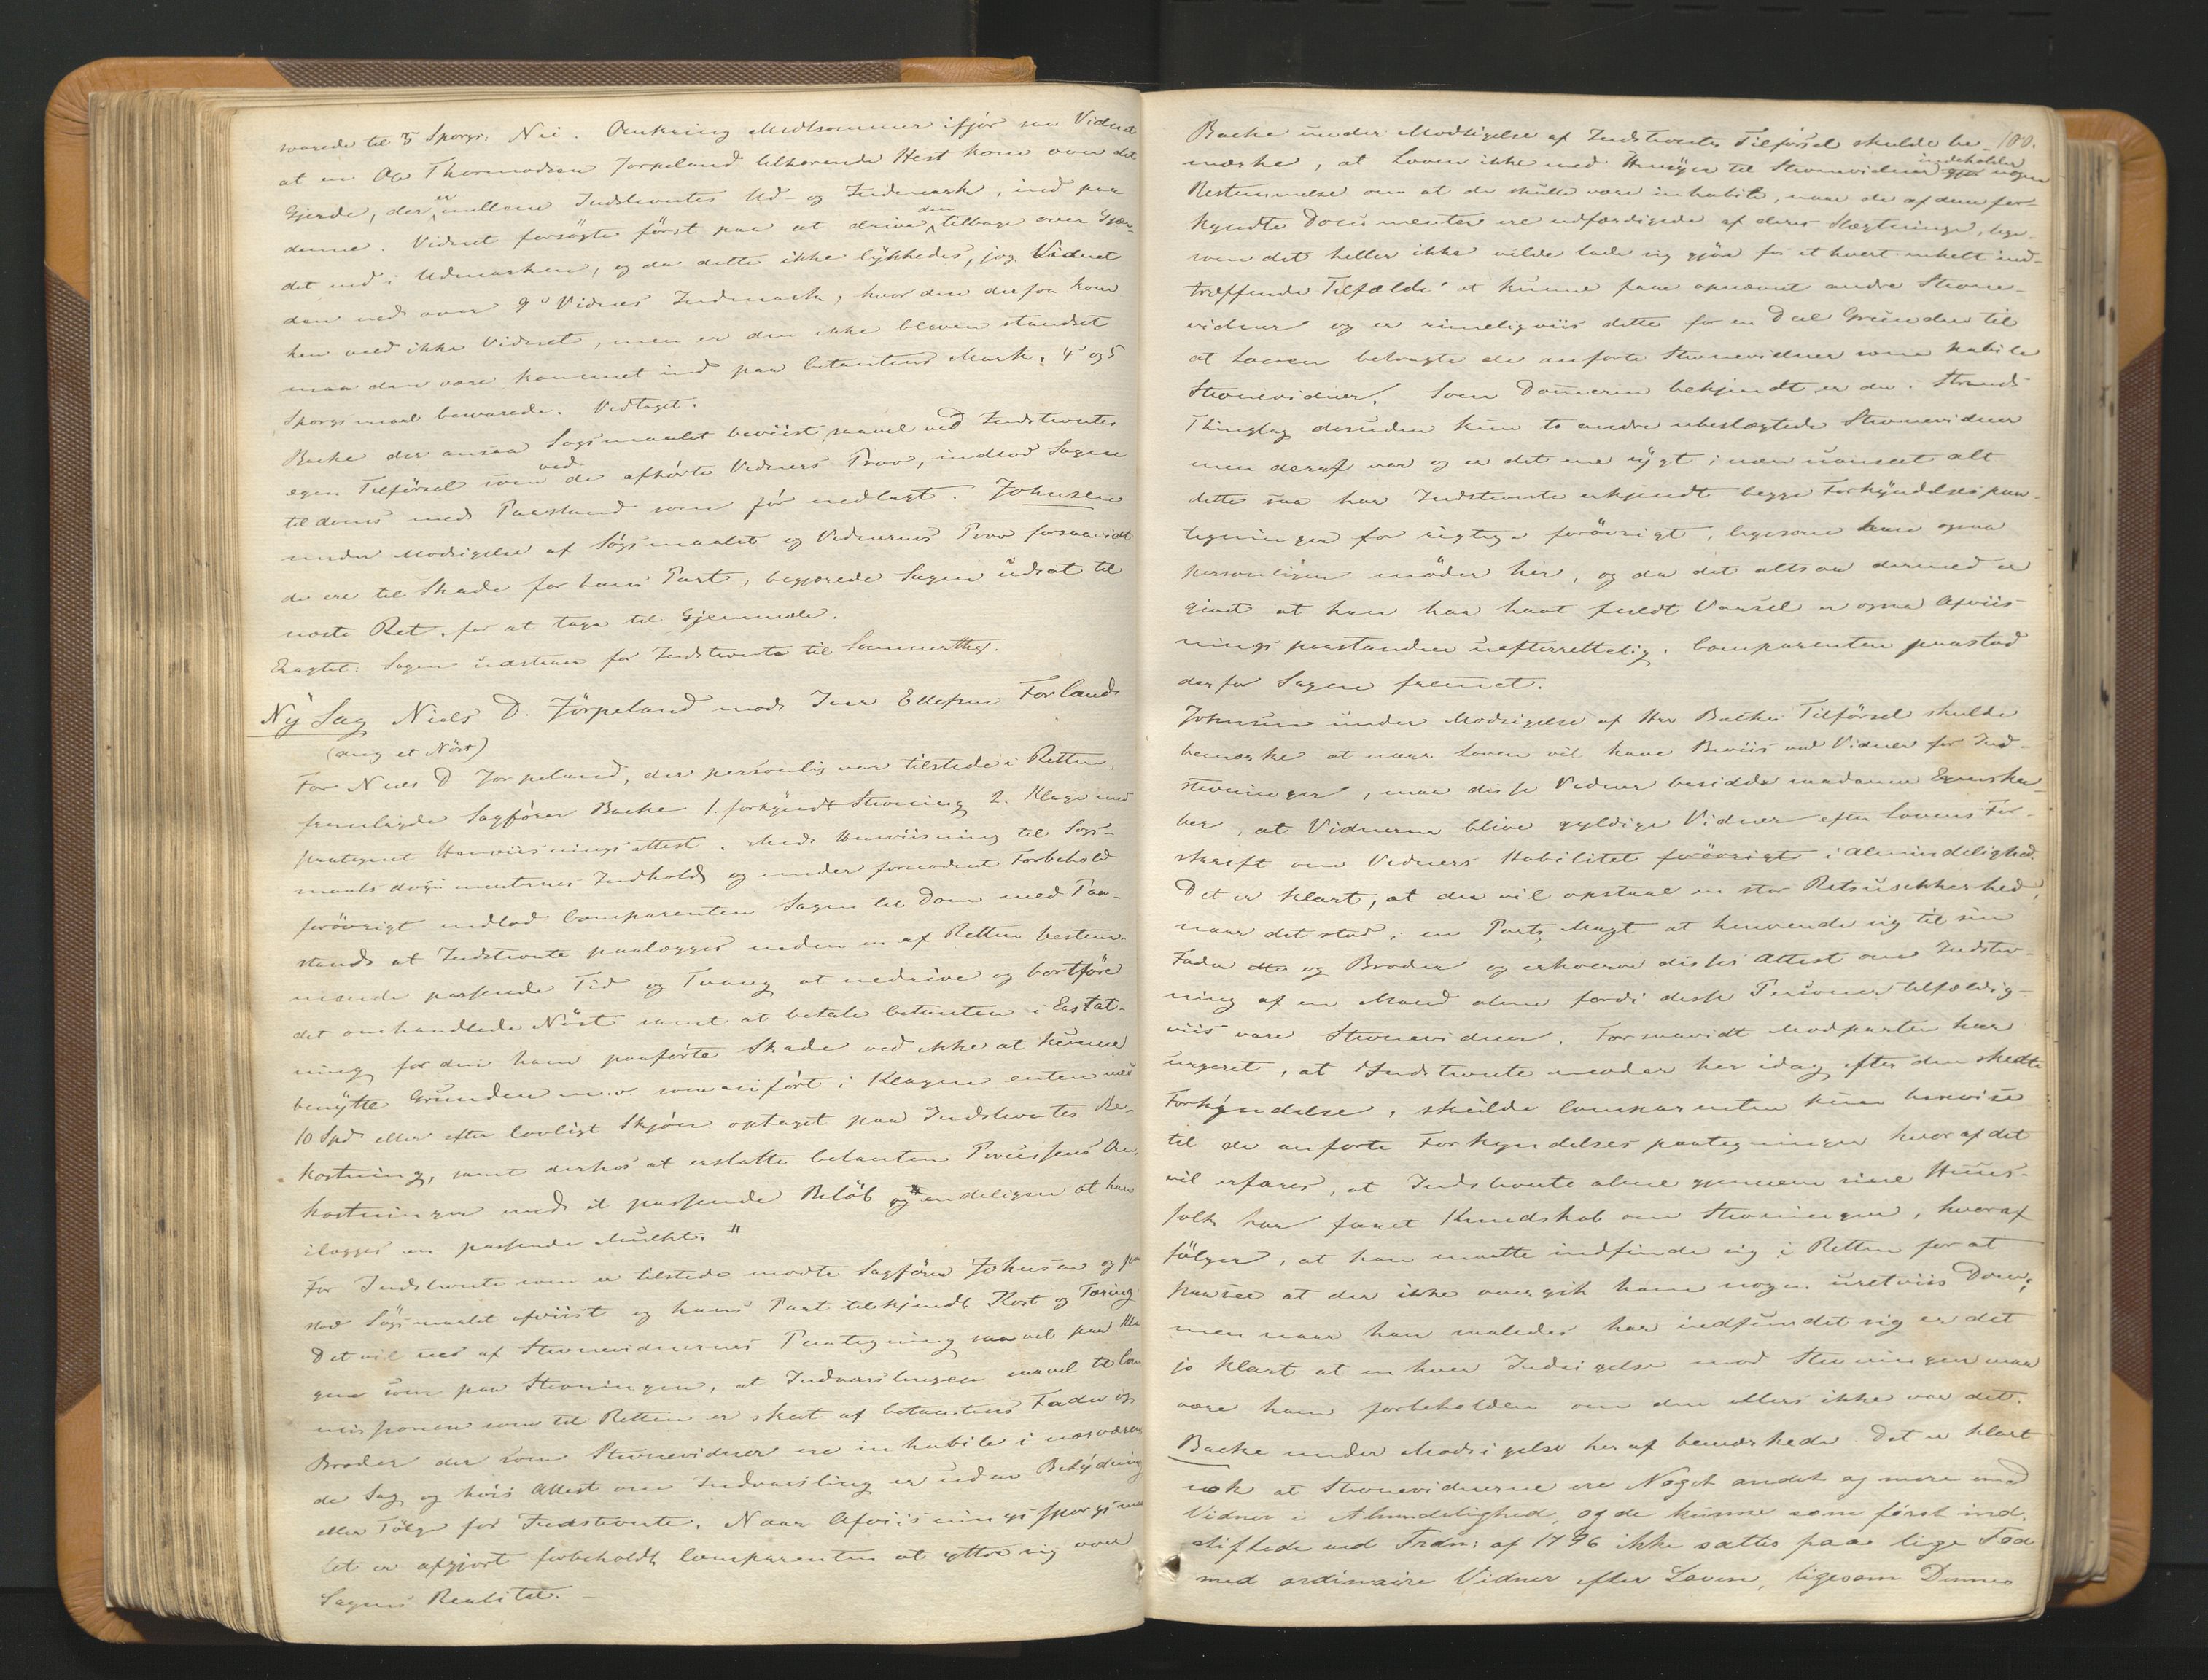 svarede til 3 Spörgs: Nei. Omkring Midtsommer ifjör saa Vidnet
at en Ole Thormodsen Jørpeland tilhørende Hest kom over det
Gjerde, der er mellem Indstevntes Ud- og Indmark, ind paa
denne. Vidnet forsögte först paa at drive den tilbage over Gjær-
det ned i Udmarken, og da dette ikke lykkedes, jog Vidnet
den ned over 9de Vidnes Indmark, hvor den derfra kom
hen ved ikke Vidnet, men er den ikke bleven standset
maa den være kommet ind paa Citantens Mark. 4 og 5
Spörgsmaal besvarede. Vedtaget.
Bache der ansaa Sögsmaalet beviist saavel ved Indstevntes
egen Tilförsel som ved de afhörte Vidners Prov, indlod Sagen
til doms med Paastand som för nedlagt. Johnsen
under Modsigelse af Sögsmaalet og Vidnernes Prov forsaavidt
de ere til Skade for hans Part, begjærede Sagen udsat til
næste Ret, for at tage til Gjenmæle.
Eragtet: Sagen udstaar for Indstevnte til Sommerthg.
Ny Sag Niels D. Jörpeland mod Iver Ellefsen Forland
(ang et Nöst)
For Niels D Jørpeland, der personlig var tilstede i Retten,
fremlagde Sagförer Bache 1. forkyndt Stevning 2. Klage med
paategnet Henviisningsattest. Med Henviisning til Sögs-
maalsdocumenternes Indhold og under fornødent Forbehold
forövrigt indlod Comparenten Sagen til Dom med Paa-
stand at Indstevnte paalægges inden en af Retten bestem-
mende passende Tid og Tvang at nedrive og bortföre
det omhandlede Nöst samt at betale Citanten i Erstat-
ning for den ham paaförte Skade ved ikke at kunne
benytte Grunden m.v. som anfört i Klagen enten med
10 Spd eller efter lovligt Skjön optaget paa Indstevntes Be-
kostning, samt derhos at erstatte Citanten Processens Om-
kostninger med et passende Belöb og endeligen at han
ilægges en passende Mulkt.
For Indstevnte som er tilstede mødte Sagförer Johnsen og paa
stod Sögsmaalet afviist og hans Part tilkjendt Kost og Tæring
Det vil sees af Stevnevidnernes Paategning saavel paa Kla
gen som paa Stevningen, at Indvarslingen saavel til Com
missionen som til Retten er skeet af Citantens Fader og
Broder der som Stevnevidner ere inhabile i nærværen
de Sag og hvis Attest om Indvarsling er uden Betydning
eller Fölge for Indstevnte. Naar Afviisningsspörgsmaa
let er afgjort forbeholdt Comparenten at yttre sig over
Sagens Realitet.
100.
Bache under Modsigelse af Indstevntes Tilförsel skulde be-
mærke, at Loven ikke med Hensyn til Stevnevidner indeholder nogen
Bestemmelse om at de skulle være inhabile, naar de af dem for-
kyndte Documenter ere udfærdigede af deres Slægtninge, lige-
som det heller ikke vilde lade sig gjöre for et hvert enkelt ind-
træffende Tilfælde at kunne faae opnævnt andre Stevne-
vidner og er rimeligviis dette for en Deel Grunden til
at Loven betragte de anførte Stevnevidner som habile
Stevnevidner. Som Dommeren bekjendt, er der i Strands
Thinglag desuden kun to andre ubeslægtede Stevnevidner
men deraf var og er det ene sygt; men uanseet alt
dette saa har Indstevnte erkjendt begge Forkyndelsespaa-
tegninger for rigtige forövrigt, ligesom han ogsaa
personligen möder her, og da det altsaa dermed er
givet at han har havt fuldt Varsel er ogsaa Afviis
ningspaastanden uefterrettelig. Comparenten paastod
derfor Sagen fremet.
Johnsen under Modsigelse af Hrr Baches Tilförsel skulde
bemærke at naar Loven vil have Beviis ved Vidner for Ind-
stevninger, maa disse Vidner besidde saadanne Egenska-
ber, at Vidnerne blive gyldige Vidner efter Lovens For-
skrift om Vidners Habilitet forövrigt i Almindelighed.
Det er klart, at der vil opstaae en stor Retsusikkerhed,
naar det stod i en Parts Magt at henvende sig til sin
Fader og Broder og erhverve disses Attest om Indstev-
ning af en Mand alene fordi disse Personer tilfældig-
viis vare Stevnevidner. Forsaavidt Modparten har
urgeret, at Indstevnte møder her idag efter den skedte
Forkyndelse, skulde Comparenten kun henvise
til de anførte Forkyndelsespaategninger hvoraf det
vil erfares, at Indstevnte alene gjennem sine Huus-
folk har faaet Kundskab om Stevningen, hvoraf
fölger, at han maatte indfinde sig i Retten for at
paasee at der ikke overgik ham nogen uretviis Dom;
men naar han saaledes har indfundet sig er det
jo klart at en hver Indsigelse mod Stevningen maa
være ham forbeholden om den ellers ikke var det.
Bache under Modsigelse heraf bemærkede. Det er klart
nok at Stevnevidnerne ere Noget andet og mere end
Vidner i Almindelighed, og de kunne som först ind-
stiftede ved Frdn: af 1796 ikke sættes paa lige Fod
med ordinaire Vidner efter Loven, ligesom Dennes